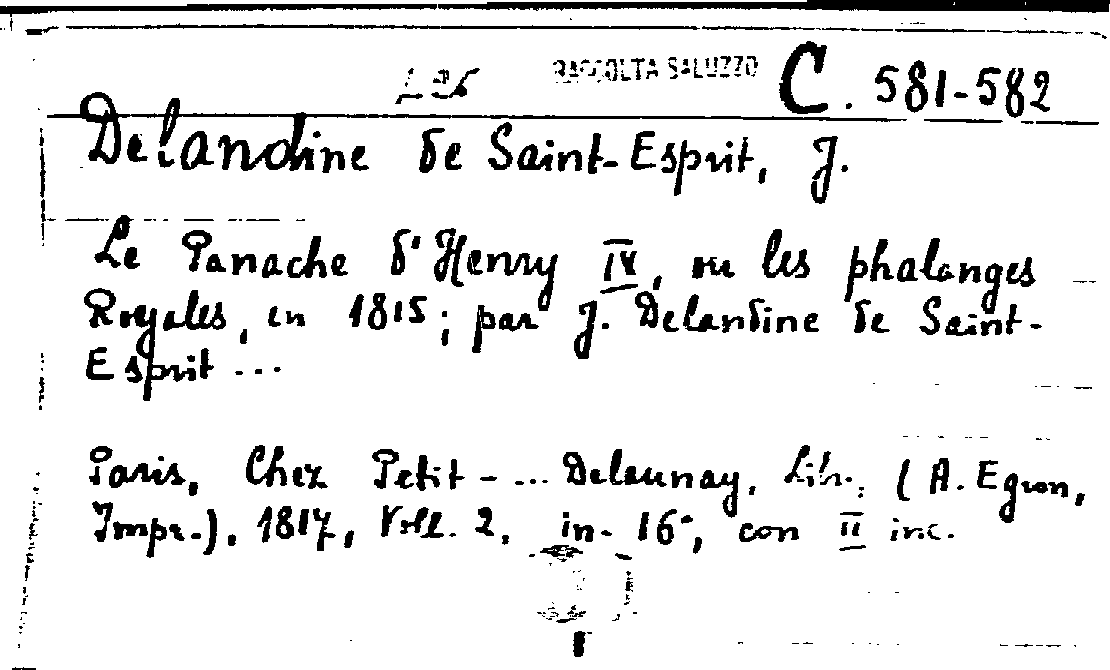 RACCOLTA SALUZZO C. 581-582
Delandine de Saint-Esprit, J.
Le Panache d'Henry IV, ou les phalanges
Royales, en 1815; par J. Delandine de Saint-
Esprit ...
Paris, Chez Petit - ... Delaunay, Libr., (A. Egron,
Impr.), 1817, Voll. 2, in-16°, con II inc.